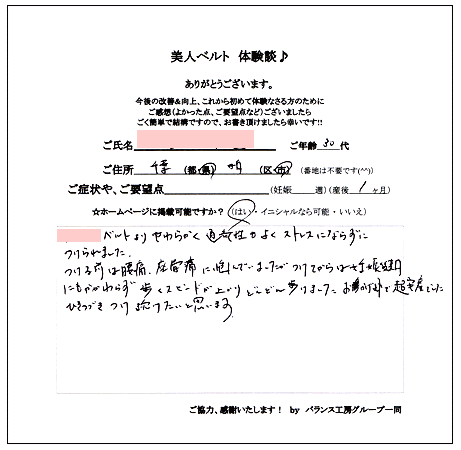 美人ベルト 体験談♪
ありがとうございます。
今後の改善&向上、これから初めて体験なさる方のために
ご感想(よかった点、ご要望点など)ございましたら
ごく簡単で結構ですので、お書き頂けましたら幸いです!!
ご氏名 ご年齢 30 代
ご住所 千葉 (都・県) (区・市) (番地は不要です(^^))
ご症状や、ご要望点 (妊娠 週) (産後 1 ヶ月)
☆ホームページに掲載可能ですか? (はい・イニシャルなら可能・いいえ)
ベルトよりやわらかく通気性もよくストレスにならずに
つけられました。
つける前は腰痛、座骨痛に悩んでいましたがつけてからは妊娠後期
にもかかわらず歩くスピードが上がりどんどん歩けました お で超安産でした
ひきつづきつけ続けたいと思います。
ご協力、感謝いたします! by バランス工房グループ一同